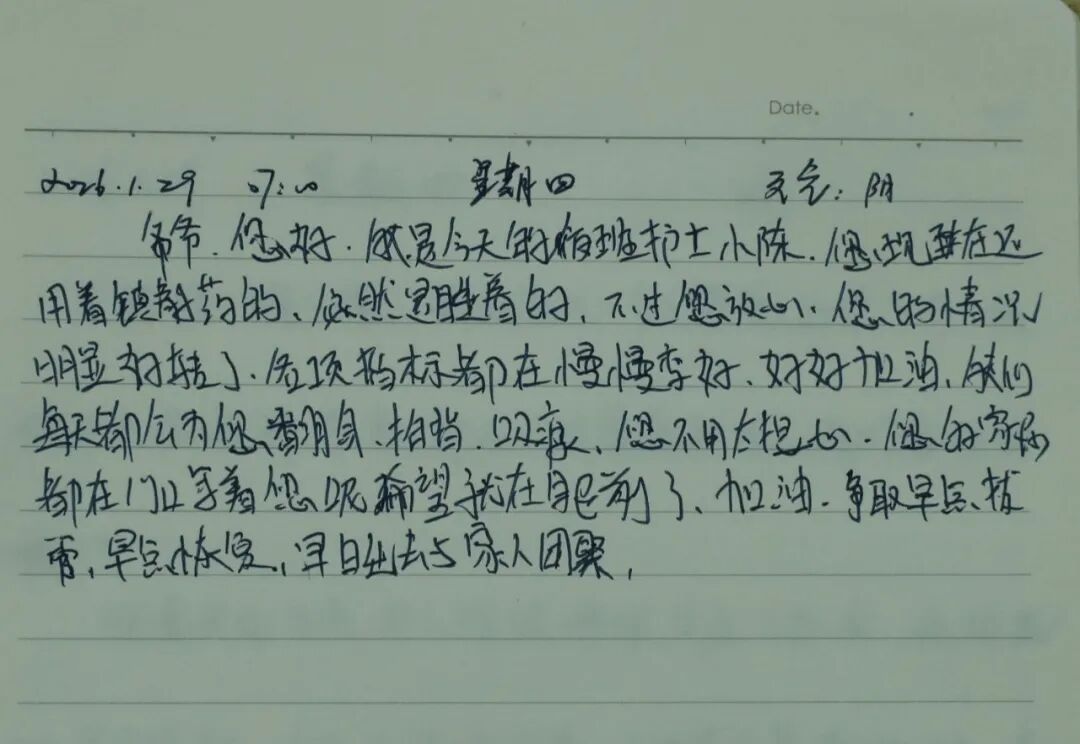 Date.
2026.1.29 07:00 星期四 天气:阴
爷爷,您好,我是今天的值班护士小陈,您现在还
用着镇静药的,依然是睡着的,不过您放心,您的情况
明显好转了,各项指标都在慢慢变好,好好加油,我们
每天都会为您翻身、拍背、吸痰,您不用太担心,您的家属
都在门口等着您呢,希望就在自己前了,加油,争取早点拔
管,早点恢复,早日出去与家人团聚,